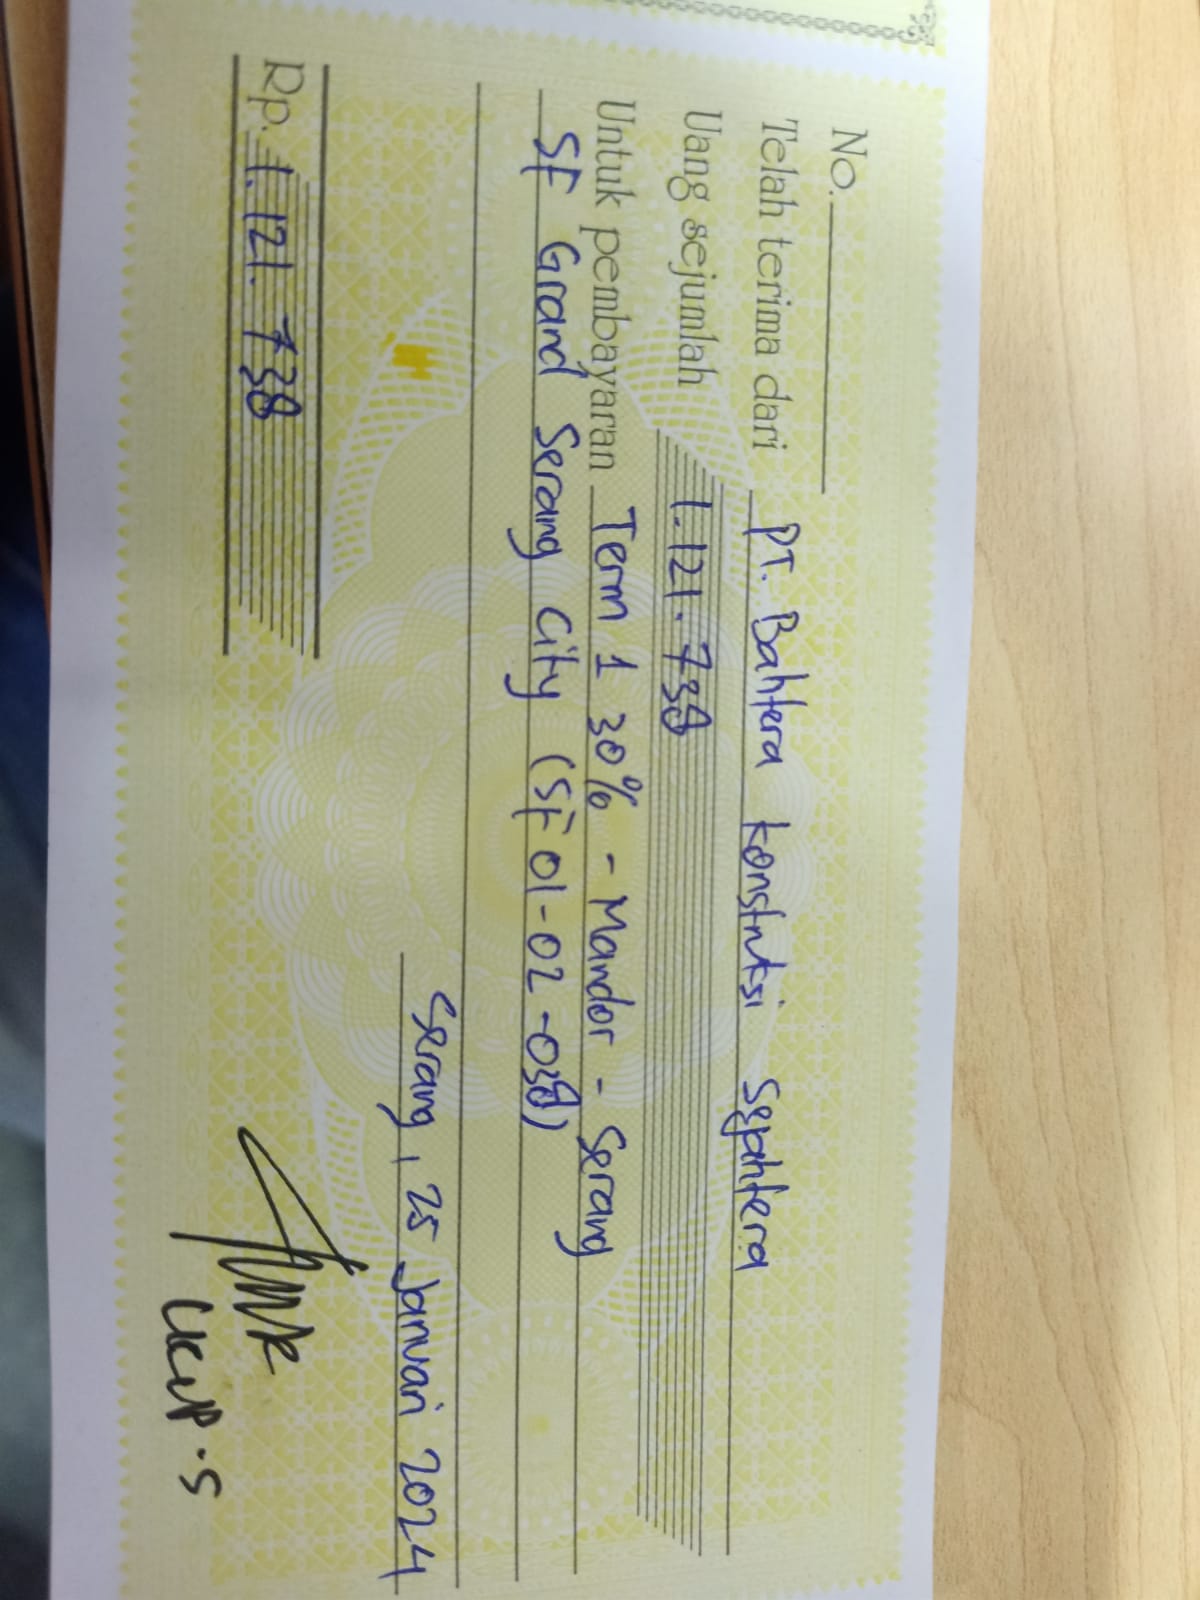 No.
Telah terima dari PT. Bahtera konstruksi Sejahtera
Uang sejumlah 1.121.738
Untuk pembayaran Term 1 30% - Mandor - Serang
SF Grand Serang City (SF 01-02-038)
Serang, 25 Januari 2024
Rp. 1.121.738